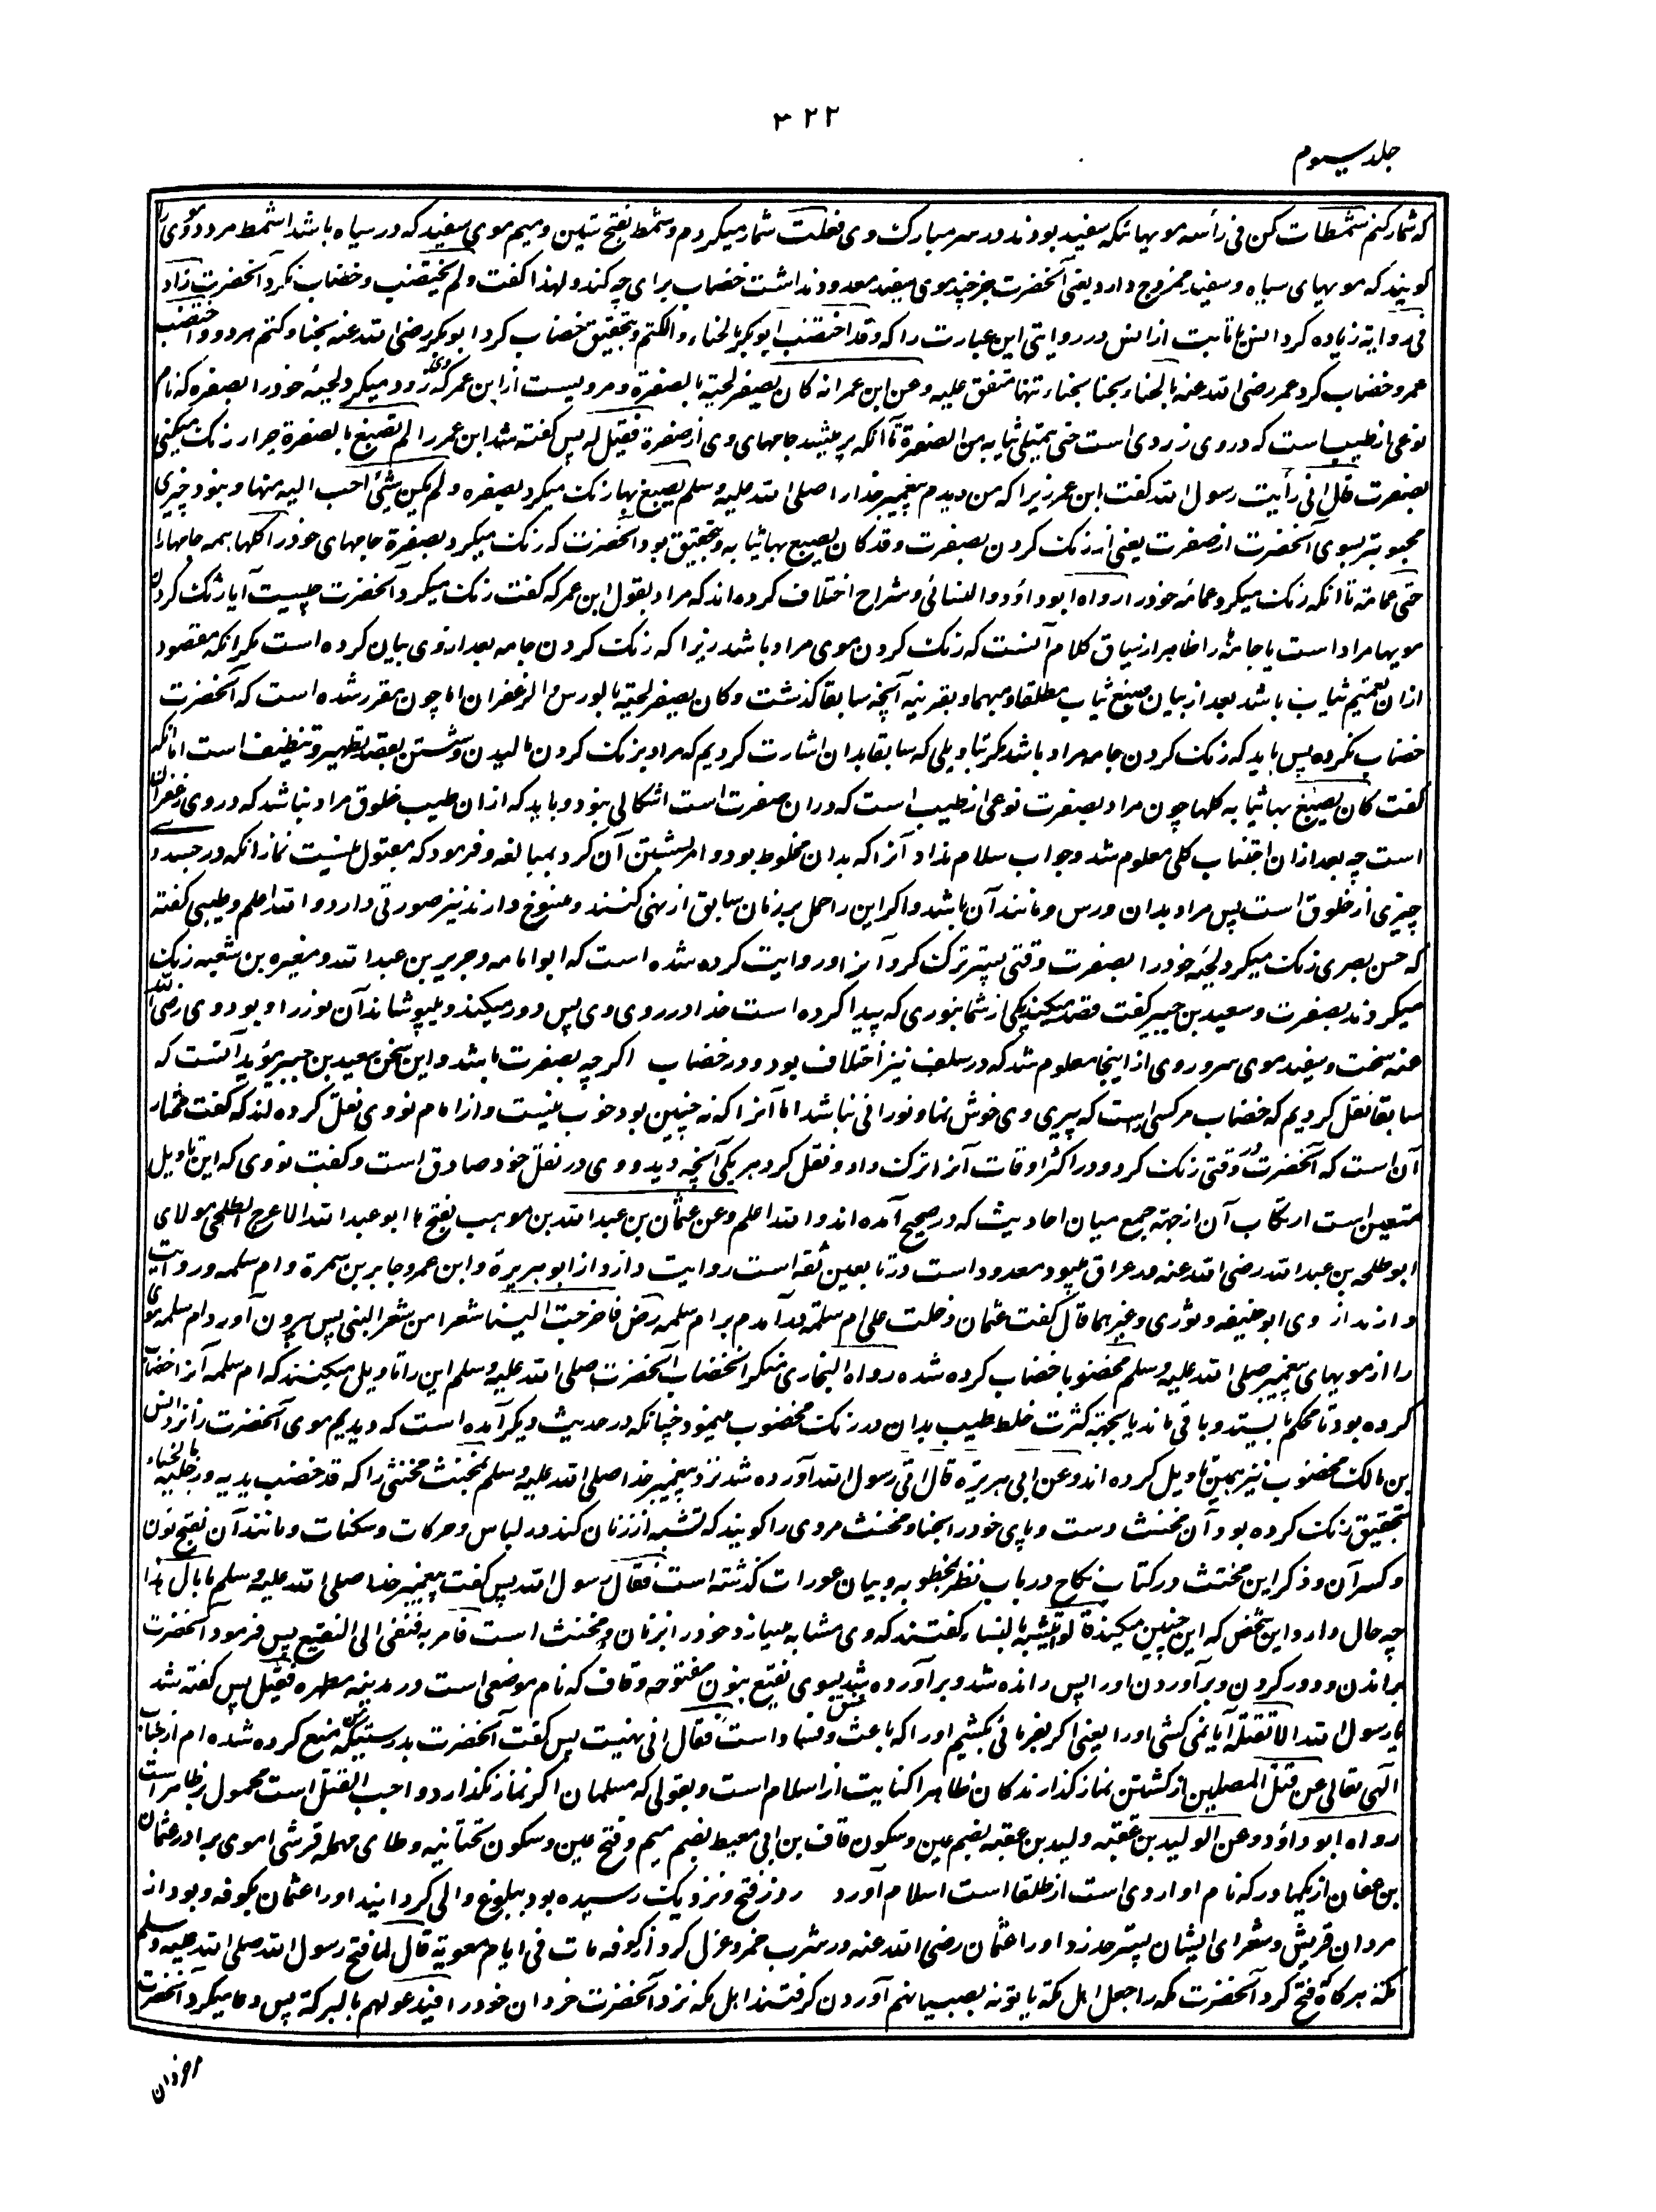 ۳۲۲
جلد سیوم
که شمار کنم شمطات کن فی رأسه مویهائیکه سفید بودند در سر مبارک وی فعلت شمار میکردم و شمط بفتح شین و میم موی سفید که در سیاه باشد اشمط مرد دو موی را
گویند که مویهای سیاه و سفید ممزوج دارد یعنی آنحضرت بجز چند موی سفید معدود نداشت خضاب برای چه کند و لهذا گفت و لم یختضب و خضاب نکرد آنحضرت زاد
فی روایة زیاده کرد انس یا ثابت از انس در روایتی این عبارت را که و قد اختضب ابو بکر بالحناء و الکتم و بتحقیق خضاب کرد ابو بکر رضی الله عنه بحنا و کتم هر دو و اختضب
عمر و خضاب کرد عمر رضی الله عنه بالحناء بحتا بحناء تنها متفق علیه و عن ابن عمر انه کان یصفر لحیته بالصفرة و مرویست از ابن عمر که وی زرد میکرد لحیهٔ خود را بصفره که نام
نوعی از طیب است که در وی زردی است حتی یمتلی ثیابه من الصفرة تا آنکه پر میشد جامهای وی از صفرة فقیل له پس گفته شد ابن عمر را لم تصبغ بالصفرة چرا رنگ میکنی
بصفرت قال انی رأیت رسول الله گفت ابن عمر زیرا که من دیدم پیغمبر خدا را صلی الله علیه و سلم یصبغ بها رنگ میکرد بصفره و لم یکن شئ احب الیه منها و نبود چیزی
محبوبتر بسوی آنحضرت از صفرت یعنی از رنگ کردن بصفرت و قد کان یصبغ بها ثیابه و بتحقیق بود آنحضرت که رنگ میکرد بصفرة جامهای خود را کلها همه جامها را
حتی عمامته تا آنکه رنگ میکرد عمامهٔ خود را رواه ابو داؤد و النسائی و شراح اختلاف کرده‌اند که مراد بقول ابن عمر که گفت رنگ میکرد آنحضرت چیست آیا رنگ کردن
مویها مراد است یا جامه را ظاهر از سیاق کلام آنست که رنگ کردن موی مراد باشد زیرا که رنگ کردن جامه بعد از وی بیان کرده است مگر آنکه مقصود
ازان تعمیم ثیاب باشد بعد از بیان صبغ ثیاب مطلقا و مبهما و بقرینه آنچه سابقا گذشت و کان یصفر لحیته بالورس و الزعفران اما چون مقرر شده است که آنحضرت
خضاب نکرده پس باید که رنگ کردن جامه مراد باشد مگر بتاویلی که سابقا بدان اشارت کردیم که مراد برنگ کردن مالیدن و شستن بقصد تطهیر و تنظیف است اما آنکه
گفت کان یصبغ بها ثیابه کلها چون مراد بصفرت نوعی از طیب است که دران صفرت است اشکالی بنود و باید که ازان طیب خلوق مراد نباشد که در وی زعفران
است چه بعد ازان اجتناب کلی معلوم شد و جواب سلام نداد آنرا که بدان مخلوط بود و امر بشستن آن کرد بمبالغه و فرمود که مقبول نیست نماز آنکه در جسد وی
چیزی از خلوق است پس مراد بدان ورس و مانند آن باشد و اگر این را حمل بر زمان سابق از نهی کنند و منسوخ دارند نیز صورتی دارد و الله اعلم و طیبی گفته
که حسن بصری رنگ میکرد لحیهٔ خود را بصفرت وقتی پستر ترک کرد آنرا و روایت کرده شده است که ابو امامه و جریر بن عبد الله و مغیره بن شعبه رنگ
میکردند بصفرت و سعید بن جبیر گفت قصد میکند یکی از شما بنوری که پیدا کرده است خدا در روی وی پس دور میکند و میپوشاند آن نور را و بود وی رضی الله
عنه سخت و سفید موی سر و روی از اینجا معلوم شد که در سلف نیز اختلاف بود و در خضاب اگرچه بصفرت باشد و این سخن سعید بن جبیر مؤید آنست که
سابقا نقل کردیم که خضاب مر کسی راست که پیری وی خوش نما و نورانی نباشد اما آنرا که نه چنین بود خوب نیست و از امام نووی نقل کرده‌اند که گفت مختار
آن است که آنحضرت در وقتی رنگ کرد و در اکثر اوقات آنرا ترک داد و نقل کرد هر یکی آنچه دید و وی در نقل خود صادق است و گفت نووی که این تاویل
متعین است ارتکاب آن از جهة جمع میان احادیث که در صحیح آمده‌اند و الله اعلم و عن عثمان بن عبد الله بن موهب بفتح ها ابو عبد الله الاعرج الطلحی مولای
ابو طلحه بن عبد الله رضی الله عنه در عراق میبود معدود است در تابعین ثقه است روایت دارد از ابو هریرة و ابن عمر و جابر بن سمرة و ام سلمه و روایت
دارند از وی ابو حنیفه و ثوری و غیرهما قال گفت عثمان دخلت علی ام سلمة در آمدم بر ام سلمه رض فاخرجت الینا شعرا من شعر النبی پس بیرون آورد ام سلمه موی
را از مویهای پیغمبر صلی الله علیه و سلم مخضوبا خضاب کرده شده رواه البخاری منکر انخضاب آنحضرت صلی الله علیه و سلم این را تاویل میکنند که ام سلمه آنرا خضاب
کرده بود تا محکم بایستد و باقی ماند یا بجهة کثرت خلط طیب بدان در رنگ مخضوب مینمود چنانکه در حدیث دیگر آمده است که دیدیم موی آنحضرت را نزد انس
بن مالک مخضوب نیز همین تاویل کرده‌اند و عن ابی هریرة قال اتی رسول الله آورده شد نزد پیغمبر خدا صلی الله علیه و سلم بمخنث مخنثی را که قد خضب یدیه و رجلیه بالحناء
بتحقیق رنگ کرده بود آن مخنث دست و پای خود را بحنا و مخنث مردی را گویند که تشبه از زنان کند در لباس و حرکات و سکنات و مانند آن بفتح نون
و کسر آن و ذکر این مخنث در کتاب نکاح در باب نظر بمخطوبه و بیان عورات گذشته است فقال رسول الله پس گفت پیغمبر خدا صلی الله علیه و سلم ما بال هذا
چه حال دارد این شخص که این چنین میکند قالوا یتشبه بالنساء گفتند که وی مشابه میسازد خود را بزنان و مخنث است فامر به فنفی الی النقیع پس فرمود آنحضرت
براندن و دور کردن و برآوردن او را پس رانده شد و برآورده شد بسوی نقیع بنون مفتوحه و قاف که نام موضعی است در مدینه مطهره فقیل پس گفته شد
یا رسول الله الا تقتله آیا نمی کشی او را یعنی اگر بفرمائی بکشیم او را که باعث فسق و فساد است فقال انی نهیت پس گفت آنحضرت بدرستیکه من منع کرده شده‌ام از جناب
الهی تعالی عن قتل المصلین از کشتن نماز گذارندگان ظاهرا کنایت از اسلام است و بقولی که مسلمان اگر نماز نگذارد واجب القتل است محمول بر ظاهر است
رواه ابو داؤد و عن الولید بن عقبه ولید بن عقبه بضم عین و سکون قاف بن ابی معیط بضم میم و فتح عین و سکون تحتانیه و طای مهمله قرشی اموی برادر عثمان
بن عفان از یکمادر که نام او اروی است از طلقا است اسلام آورد روز فتح و نزدیک رسیده بود ببلوغ والی گردانید او را عثمان بکوفه و بود از
مردان قریش و شعرای ایشان پستر حد زد او را عثمان رضی الله عنه در شرب خمر و عزل کرد از کوفه مات فی ایام معویة قال لما فتح رسول الله صلی الله علیه و سلم
مکة هرگاه فتح کرد آنحضرت مکه را جعل اهل مکة یاتونه بصبیانهم آوردن گرفتند اهل مکه نزد آنحضرت خردان خود را فیدعو لهم بالبرکة پس دعا میکرد آنحضرت